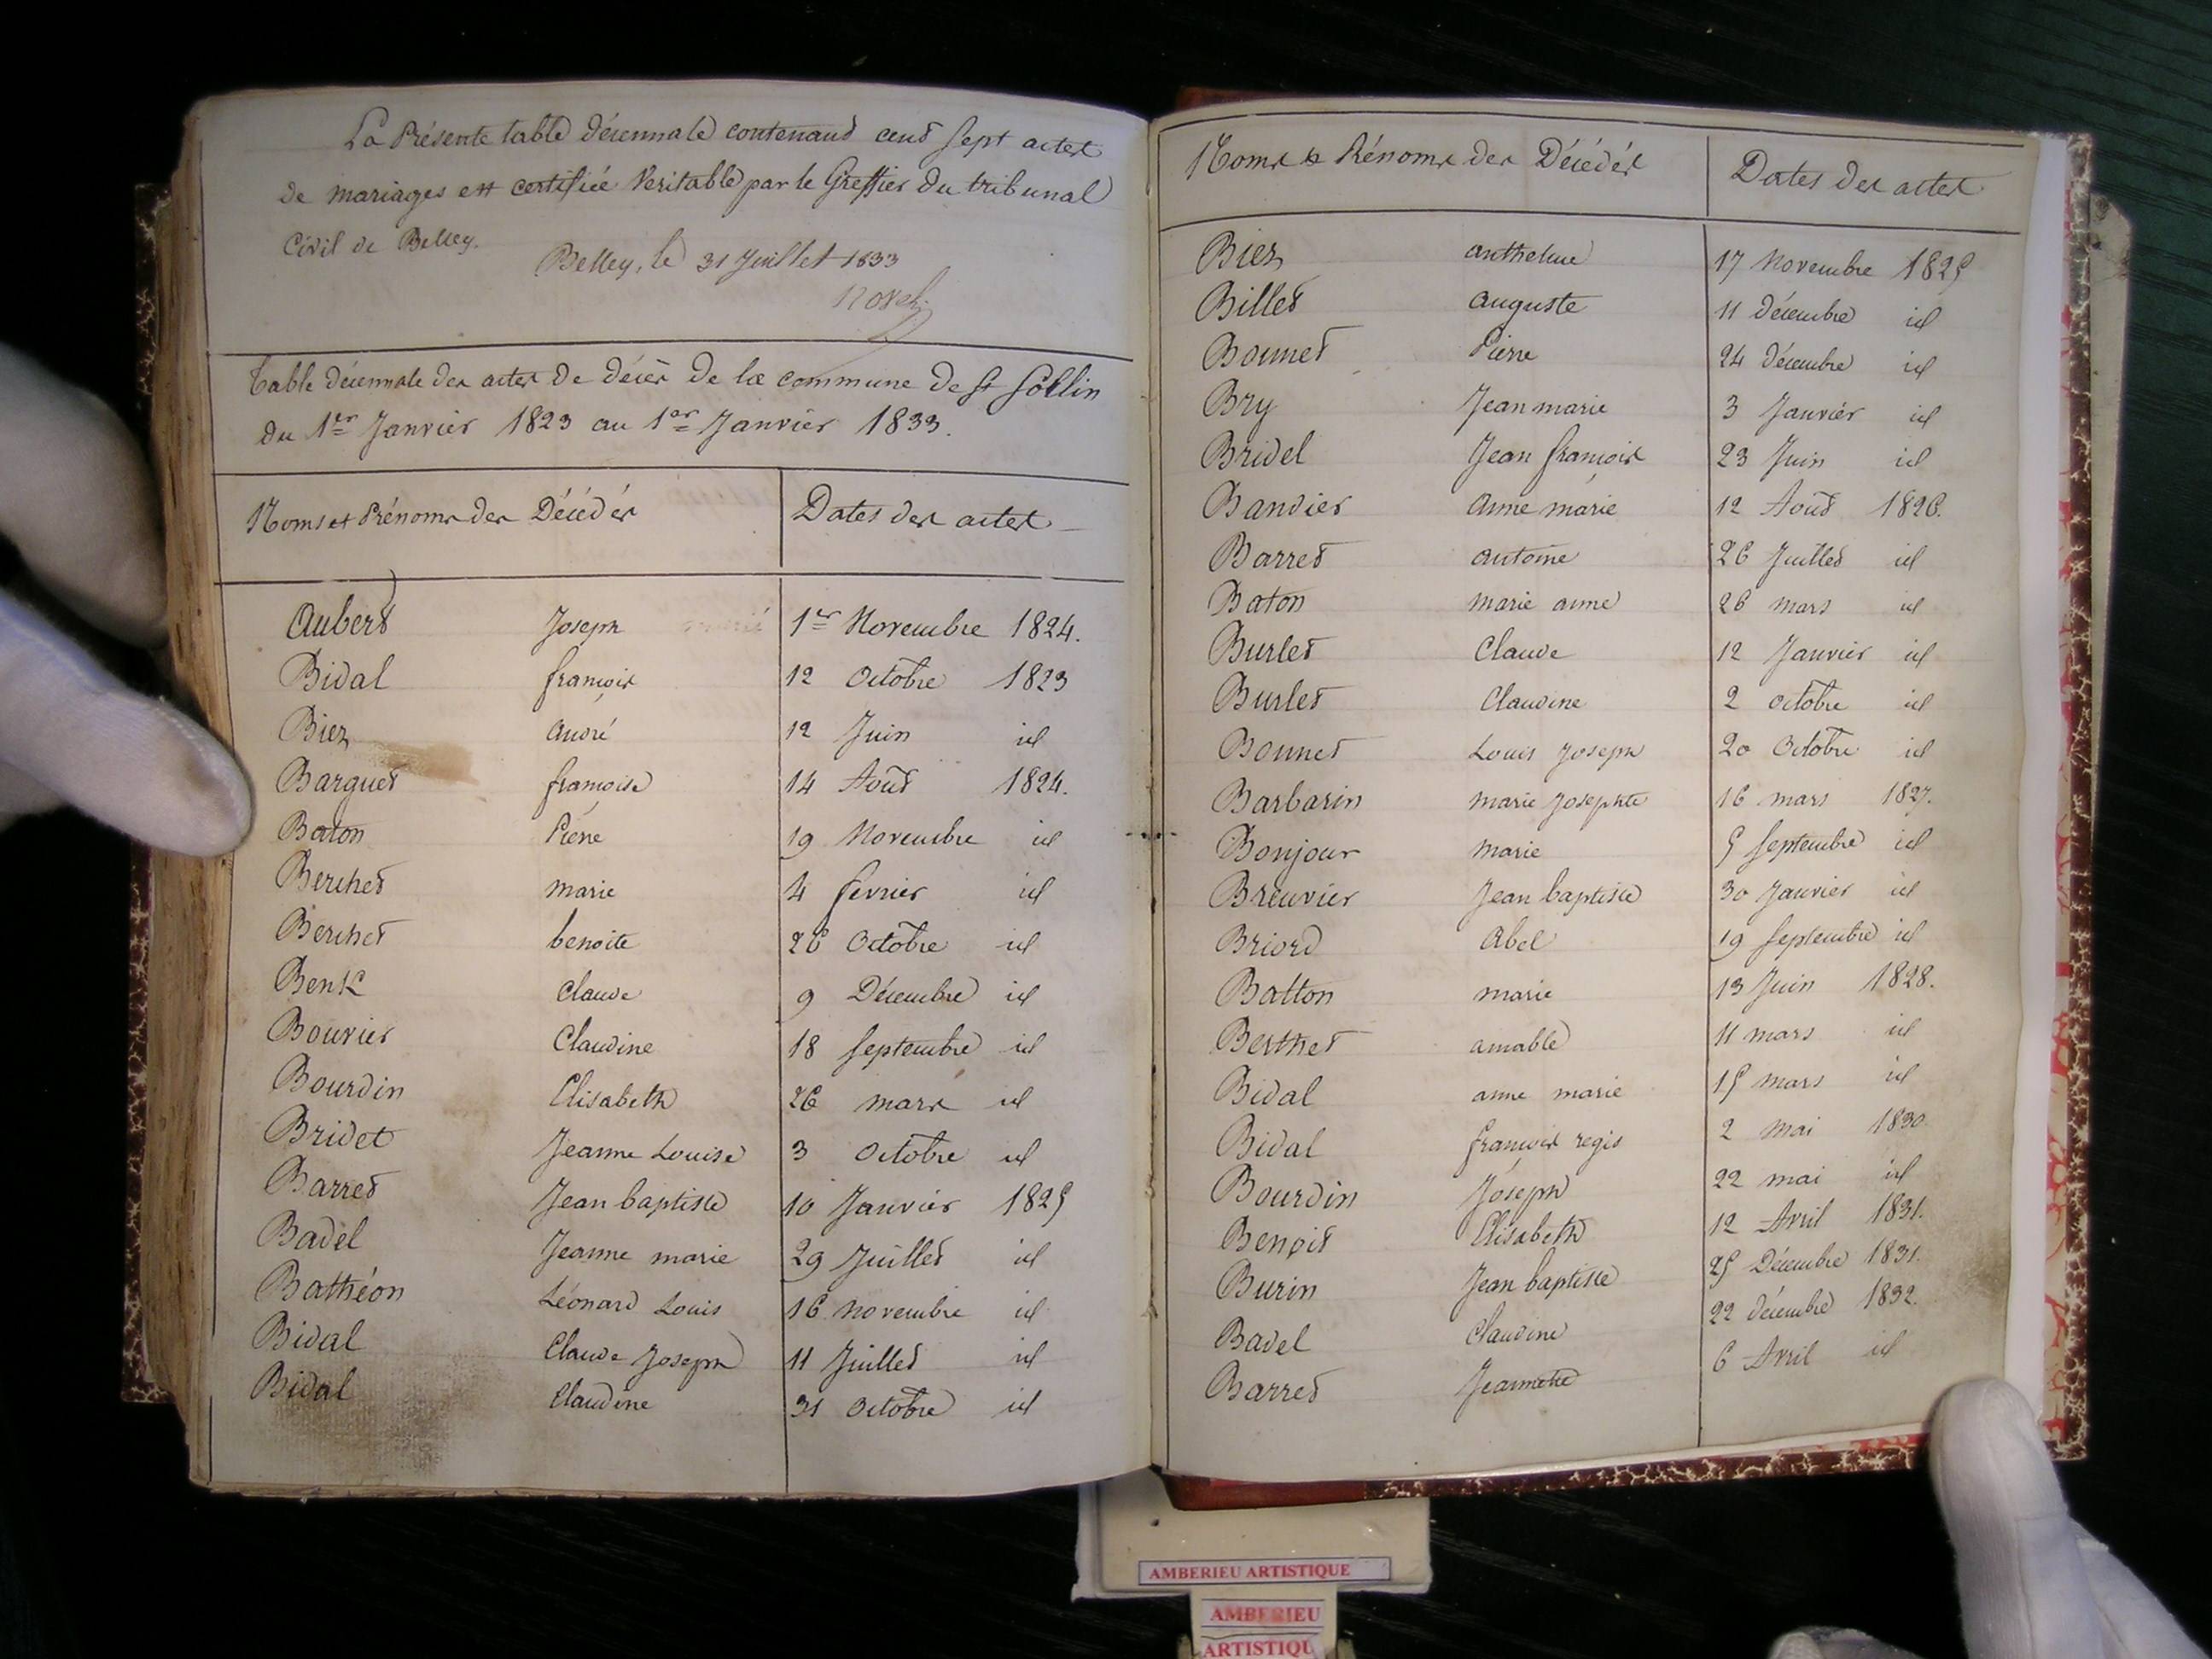 La Présente table décennale contenant cent sept actes
de mariages est certifiée véritable par le Greffier du tribunal
Civil de Belley.
Belley, le 31 Juillet 1833
Table décennale des actes de décès de la commune de St Sorlin
du 1er Janvier 1823 au 1er Janvier 1833.
Noms et Prénoms des Décédés Dates des actes
Aubert Joseph 1er Novembre 1824.
Bidal françois 12 Octobre 1823
Biez André 12 Juin id
Barguet françoise 14 Août 1824.
Baton Pierre 19 Novembre id
Berchet marie 4 fevrier id
Berchet benoite 26 Octobre id
Benk Claude 9 Décembre id
Bouvier Claudine 18 Septembre id
Bourdin Elisabeth 26 mars id
Bridet Jeanne Louise 3 Octobre id
Barret Jean baptiste 10 Janvier 1825
Badel Jeanne marie 29 Juillet id
Bathéon Léonard Louis 16 novembre id
Bidal Claude Joseph 11 Juillet id
Bidal Claudine 31 Octobre id
Noms & Prénoms des Décédés Dates des actes
Biez anthelme 17 Novembre 1825
Billet auguste 11 décembre id
Bonnet Pierre 24 décembre id
Bry Jean marie 3 Janvier id
Bridel Jean françois 23 Juin id
Bandier Anne marie 12 Août 1826.
Barret antoine 26 Juillet id
Baton marie anne 26 mars id
Burlet Claude 12 Janvier id
Burlet Claudine 2 octobre id
Bonnet Louis Joseph 20 Octobre id
Barbarin marie Josephte 16 mars 1827.
Bonjour marie 5 Septembre id
Breuvier Jean baptiste 30 Janvier id
Briord Abel 19 Septembre id
Batton marie 13 Juin 1828.
Berthet aimable 11 mars id
Bidal anne marie 15 mars id
Bidal françois regis 2 mai 1830
Bourdin Joseph 22 mai id
Benoit Elisabeth 12 Avril 1831.
Burin Jean baptiste 25 Décembre 1831.
Badel Claudine 22 décembre 1832.
Barret Jeannette 6 Avril id
AMBERIEU ARTISTIQUE
AMBERIEU
ARTISTIQU